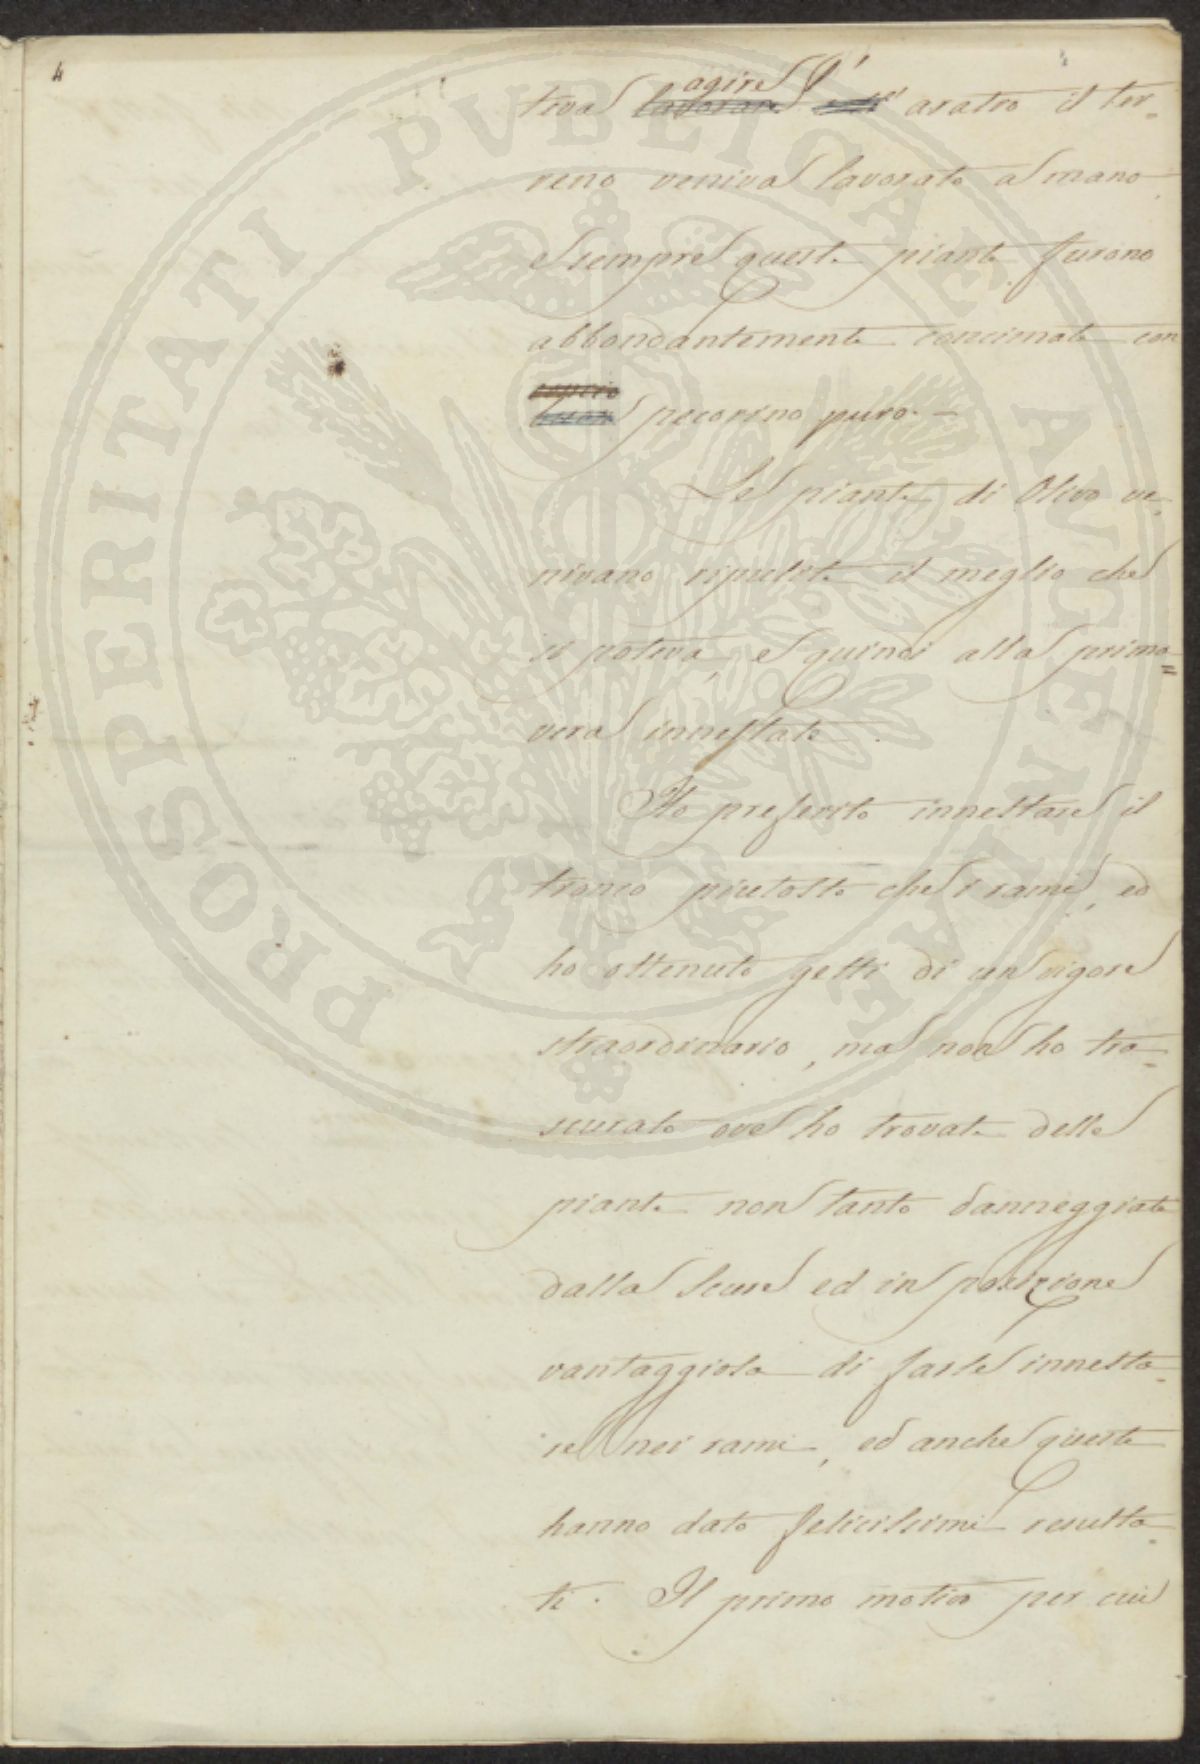 4
agire l'
teva lavorare coll' aratro il ter=
reno veniva lavorato a mano
Siempre queste piante furono
abbondantemente concimate con
pecorino puro. —
Le piante di Olivo ve=
nivano ripulite il meglio che
si poteva, e quindi alla prima=
vera innestate.
Ho preferito innestare il
tronco piutosto che i rami, ed
ho ottenuto getti di un vigore
straordinario, ma non ho tra=
scurato ove ho trovate delle
piante non tanto danneggiate
dalla scure ed in posizione
vantaggiosa di farle innesta=
re nei rami, ed anche queste
hanno dato felicissimi resulta=
ti. Il primo motivo per cui
PROSPERITATI PVBLICAE AVGENDAE